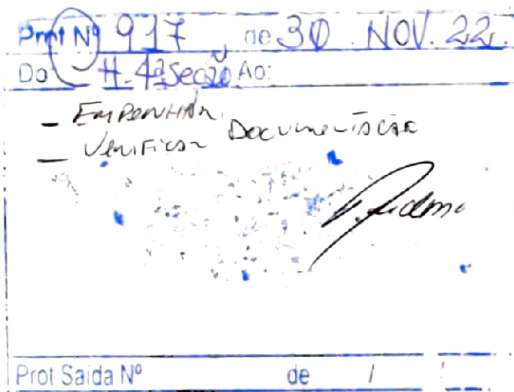 Prot Nº 917 de 30 NOV. 22.
Do H. 4ª Seção Ao:
- EMPENHAR.
- Verificar Documentação
Prot Saida Nº de / /